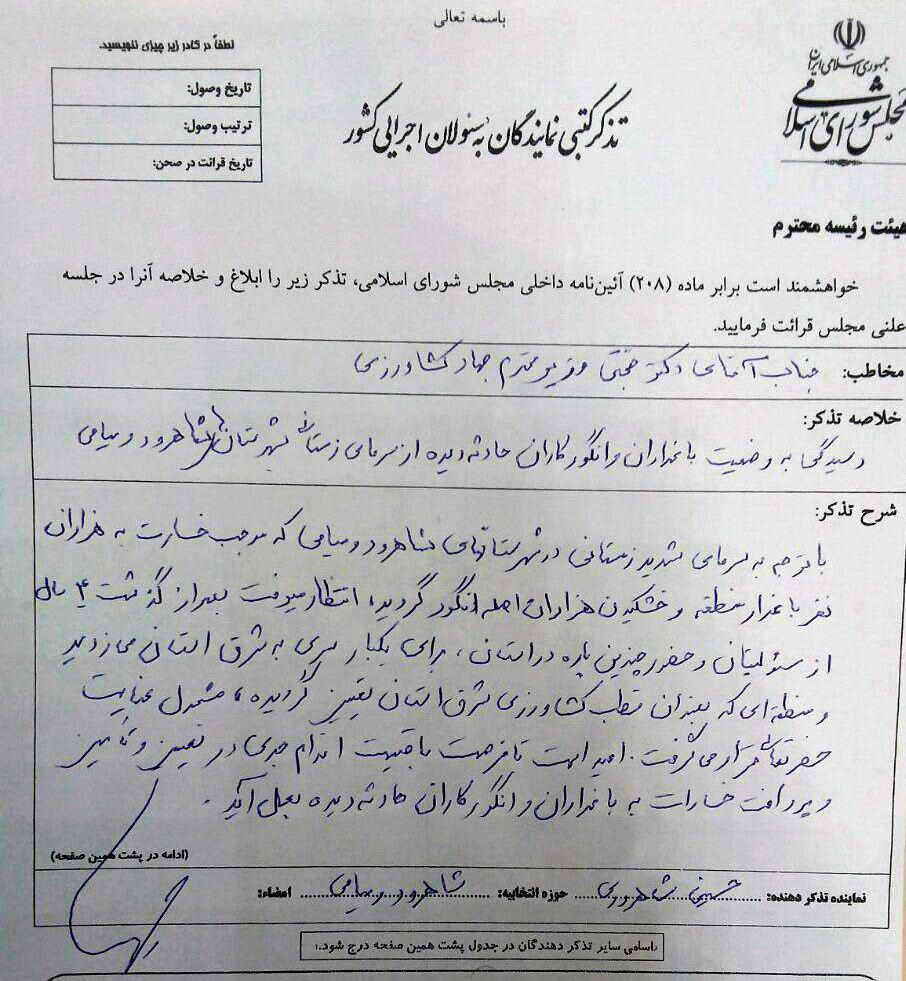 باسمه تعالی
جمهوری اسلامی ایران
مجلس شورای اسلامی
لطفاً در کادر زیر چیزی ننویسید.
تاریخ وصول:
ترتیب وصول:
تاریخ قرائت در صحن:
تذکر کتبی نمایندگان به مسئولان اجرایی کشور
هیئت رئیسه محترم
خواهشمند است برابر ماده (۲۰۸) آئین‌نامه داخلی مجلس شورای اسلامی، تذکر زیر را ابلاغ و خلاصه آنرا در جلسه
علنی مجلس قرائت فرمایید.
مخاطب: جناب آقای دکتر حجتی وزیر محترم جهاد کشاورزی
خلاصه تذکر:
رسیدگی به وضعیت باغداران و انگورکاران حادثه دیده از سرمای زستانی شهرستان های شاهرود و میامی
شرح تذکر:
با توجه به سرمای شدید زمستانی در شهرستانهای شاهرود و میامی که موجب خسارت به هزاران
نفر باغدار منطقه و خشکیدن هزاران اصله انگور گردید، انتظار میرفت بعد از گذشت ۴ سال
از مسئولیتتان و حضور چندین باره در استان، برای یکبار سری به شرق استان می‌زدید
و منطقه ای که بعنوان قطب کشاورزی شرق استان تعیین گردیده، مشمول عنایت
حضرتعالی قرار می گرفت. امید است تا فرصت باقیست اقدام جدی در تعیین و تامین
و پرداخت خسارات به باغداران و انگورکاران حادثه دیده بعمل آید.
(ادامه در پشت همین صفحه)
نماینده تذکر دهنده: حسینی شاهرودی حوزه انتخابیه: شاهرود و میامی امضاء:
اسامی سایر تذکر دهندگان در جدول پشت همین صفحه درج شود.